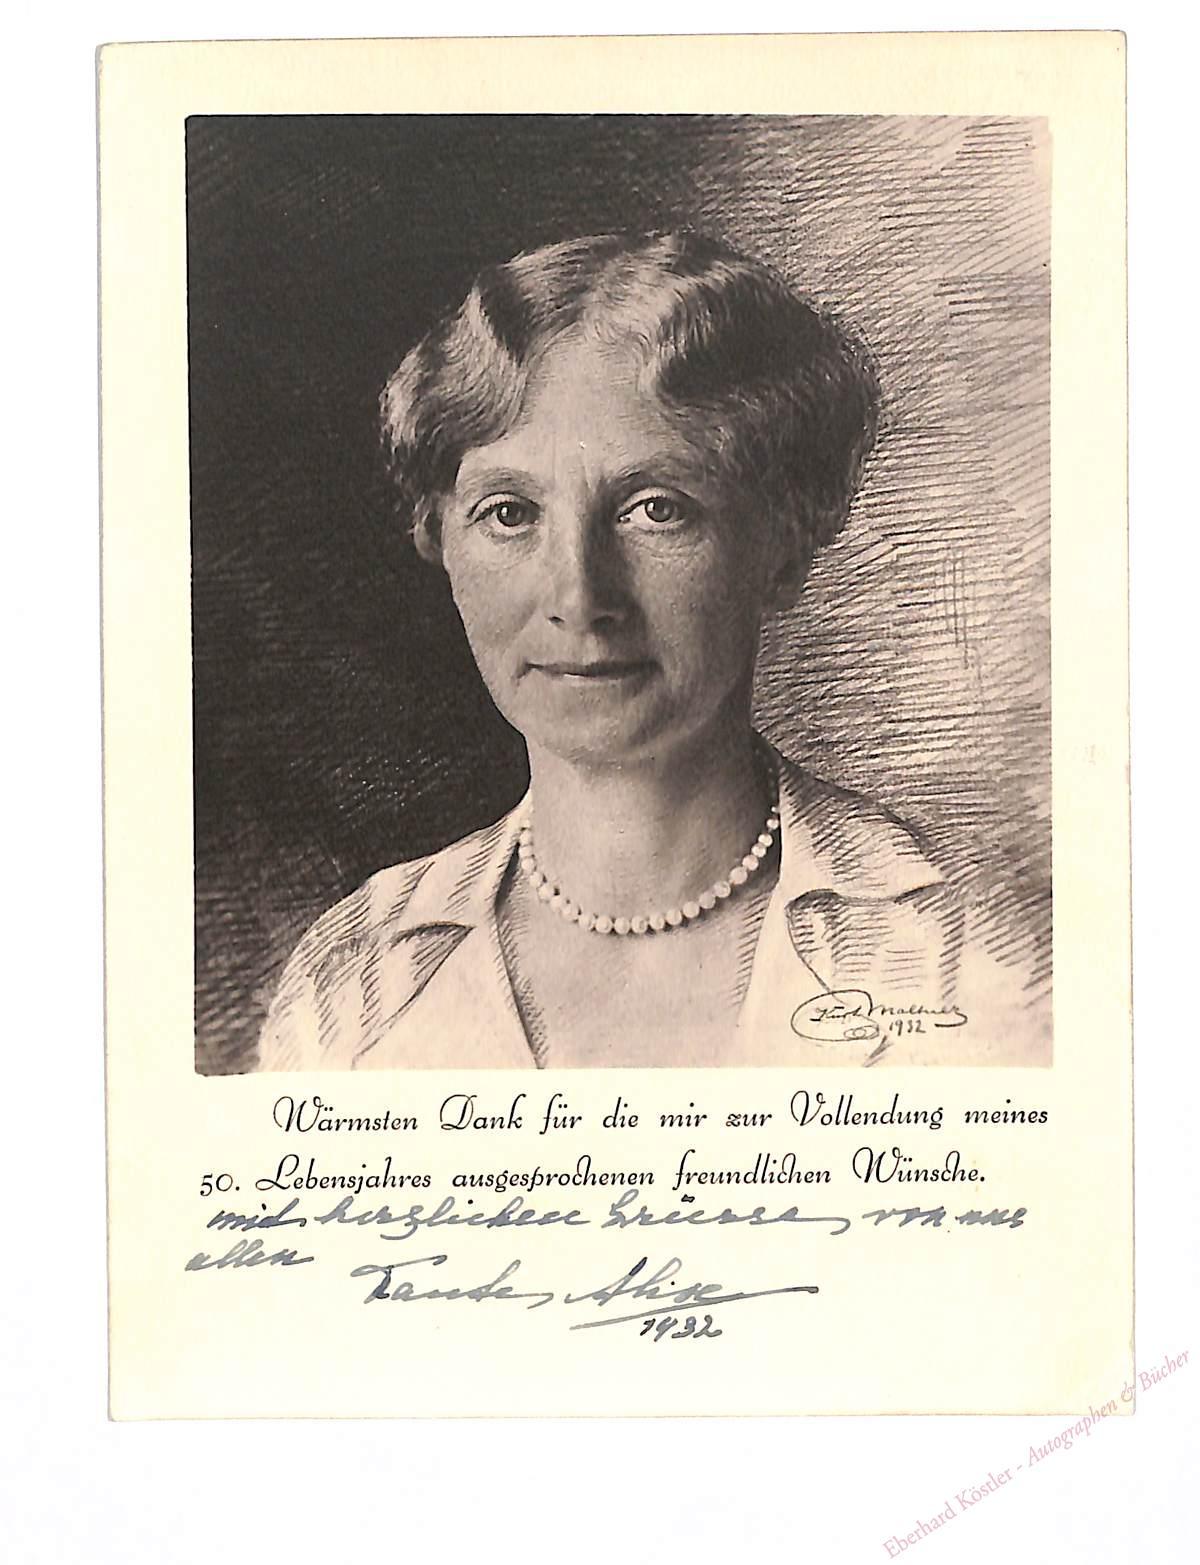 1932
Wärmsten Dank für die mir zur Vollendung meines
50. Lebensjahres ausgesprochenen freundlichen Wünsche.
mit herzlichen Grüssen, von uns
allen
Tante Alise
1932
Eberhard Köstler - Autographen & Bücher